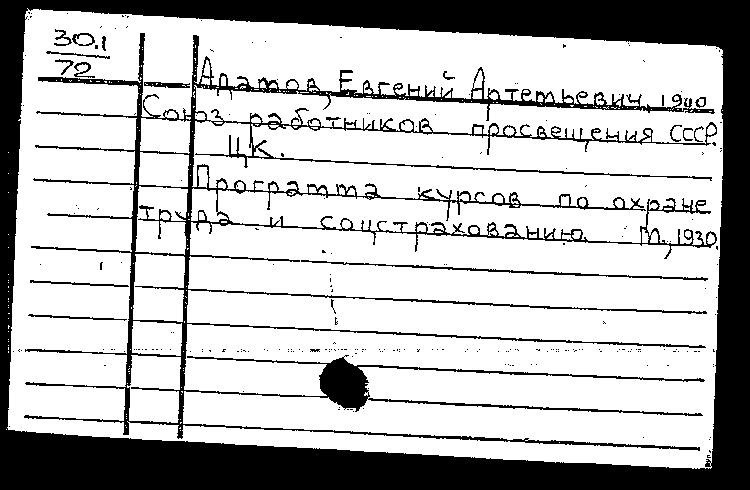 30.1
72
Адамов, Евгений Артемьевич, 1900
Союз работников просвещения СССР.
ЦК.
Программа курсов по охране
труда и соцстрахованию. М., 1930.